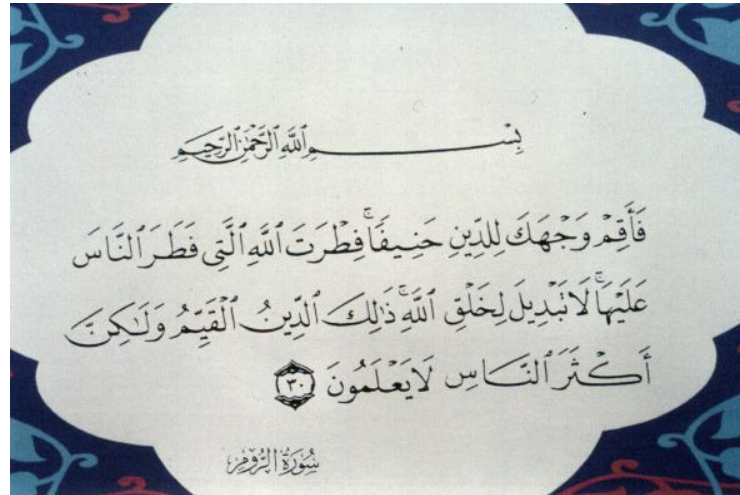 بِسْمِ ٱللَّهِ ٱلرَّحْمَٰنِ ٱلرَّحِيمِ
فَأَقِمْ وَجْهَكَ لِلدِّينِ حَنِيفًا ۚ فِطْرَتَ ٱللَّهِ ٱلَّتِى فَطَرَ ٱلنَّاسَ
عَلَيْهَا ۚ لَا تَبْدِيلَ لِخَلْقِ ٱللَّهِ ۚ ذَٰلِكَ ٱلدِّينُ ٱلْقَيِّمُ وَلَٰكِنَّ
أَكْثَرَ ٱلنَّاسِ لَا يَعْلَمُونَ ٣٠
سُورَةُ الرُّومِ